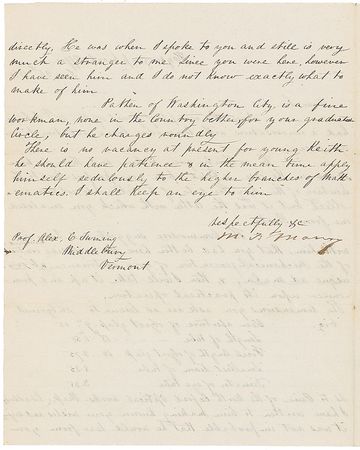 directly, He was when I spoke to you and still is very
much a stranger to me. Since you were here however
I have seen him and I do not know exactly what to
make of him
Patten of Washington City is a fine
workman, none in the Country better for your graduated
Circle, but he charges roundly
There is no vacancy at present for young Keith
he should have patience & in the mean time apply
himself sedulously to the higher branches of Math-
ematics. I shall keep an eye to him
Respectfully &c
M. F. Maury
Prof. Alex. C Twining
Middlebury
Vermont